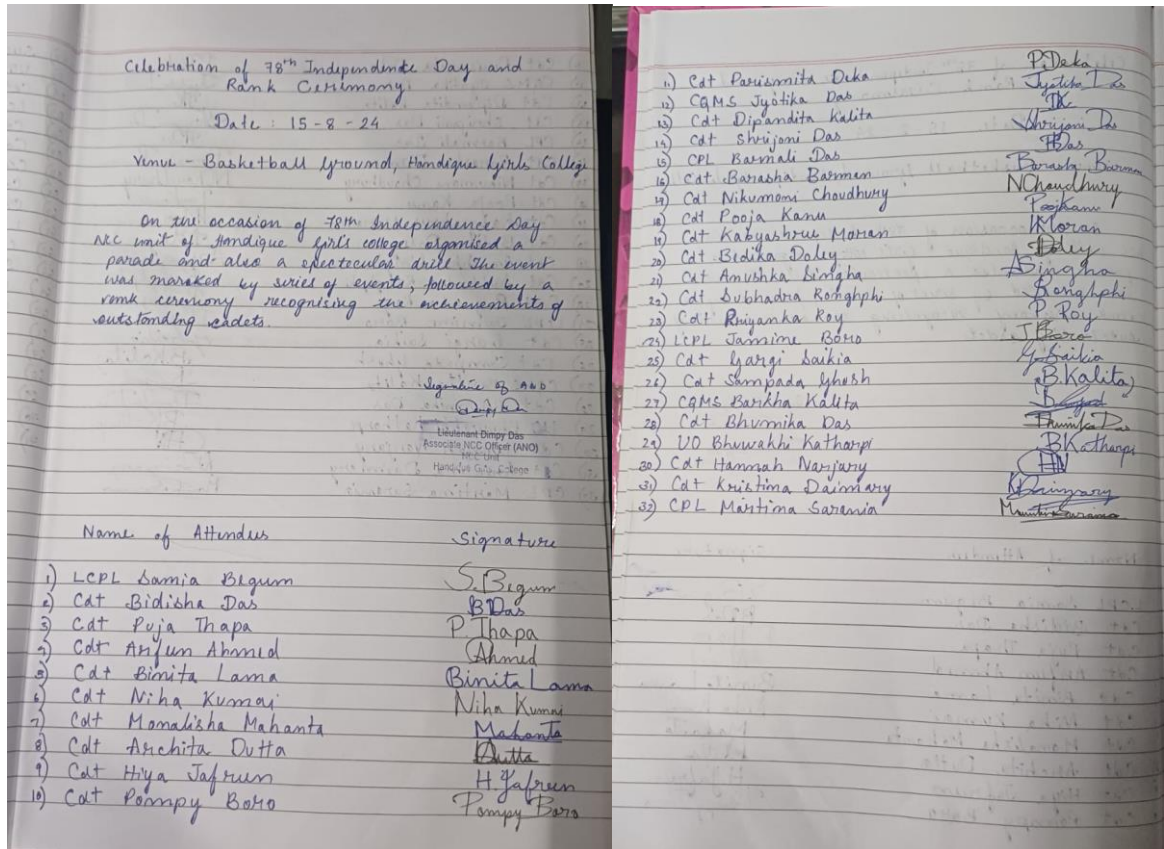 Celebration of 78th Independence Day and
Rank Cerimony
Date : 15-8-24
Venue - Basketball Ground, Handique Girls College
On the occasion of 78th Independence Day
NCC unit of Handique Girls college organised a
parade and also a spectecular drill. The event
was maraked by series of events, followed by a
rank ceremony recognising the achievements of
outstanding cadets.
Signature of ANO
Lieutenant Dimpy Das
Associate NCC Officer (ANO)
NCC Unit
Handique Girls College
Name of Attendees Signature
1) LCPL Samia Begum S.Begum
2) Cdt Bidisha Das BDas
3) Cdt Puja Thapa P.Thapa
4) Cdt Arifun Ahmed Ahmed
5) Cdt Binita Lama Binita Lama
6) Cdt Niha Kumai Niha Kumai
7) Cdt Monalisha Mahanta Mahanta
8) Cdt Archita Dutta Dutta
9) Cdt Hiya Jafreen H.Jafreen
10) Cdt Pompy Boro Pompy Boro
11) Cdt Parismita Deka P.Deka
12) CQMS Jyotika Das Jyotika Das
13) Cdt Dipandita Kalita DK
14) Cdt Shrijoni Das Shrijoni Das
15) CPL Barnali Das BDas
16) Cdt Barasha Barman Barasha Barman
17) Cdt Nikumoni Choudhury NChaudhury
18) Cdt Pooja Kanu Poojkanu
19) Cdt Kabyashree Moran KMoran
20) Cdt Bedika Doley Doley
21) Cdt Anushka Singha ASingha
22) Cdt Subhadra Ronghphi Ronghphi
23) Cdt Priyanka Roy P. Roy
24) LCPL Jamine Boro J Boro
25) Cdt Gargi Saikia G.Saikia
26) Cdt Sampada Ghosh B.Kalita
27) CQMS Barkha Kalita
28) Cdt Bhumika Das Bhumika Das
29) UO Bhuwakhi Katharpi BKatharpi
30) Cdt Hannah Narjary HN
31) Cdt Kristima Daimary KDaimary
32) CPL Martima Sarania Martima Sarania